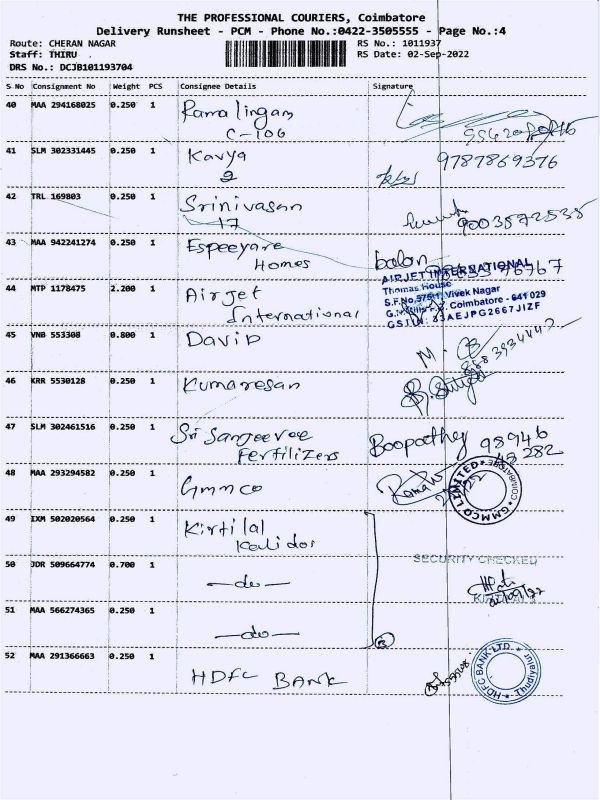 THE PROFESSIONAL COURIERS, Coimbatore
Delivery Runsheet - PCM - Phone No.:0422-3505555 - Page No.:4
Route: CHERAN NAGAR
RS No.: 1011937
Staff: THIRU .
RS Date: 02-Sep-2022
DRS No.: DCJB101193704
S No Consignment No Weight PCS Consignee Details Signature
40 MAA 294168025 0.250 1 Ramalingam
C-106
41 SLM 302331445 0.250 1 Kavya 9787869376
2
42 TRL 169803 0.250 1 Srinivasan
17 9003572535
43 MAA 942241274 0.250 1 Espeeyare balan
Homes
AIRJET INTERNATIONAL
44 MTP 1178475 2.200 1 Airjet
International
Thomas House
S.F.No. Vivek Nagar
Coimbatore - 641 029
GSTIN: 33AEJPG2667J1ZF
45 VNB 553308 0.800 1 David
46 KRR 5530128 0.250 1 Kumaresan
47 SLM 302461516 0.250 1 Sri Sanjeevee Boopathy 98946
Fertilizers 48 282
48 MAA 293294582 0.250 1 Gmmco
GMMCO LIMITED COIMBATORE
49 IXM 502020564 0.250 1 Kirtilal
Kalidos
50 JDR 509664774 0.700 1 -do-
SECURITY CHECKED
51 MAA 566274365 0.250 1 -do-
3
52 MAA 291366663 0.250 1 HDFC BANK
HDFC BANK LTD. Thudiyalur